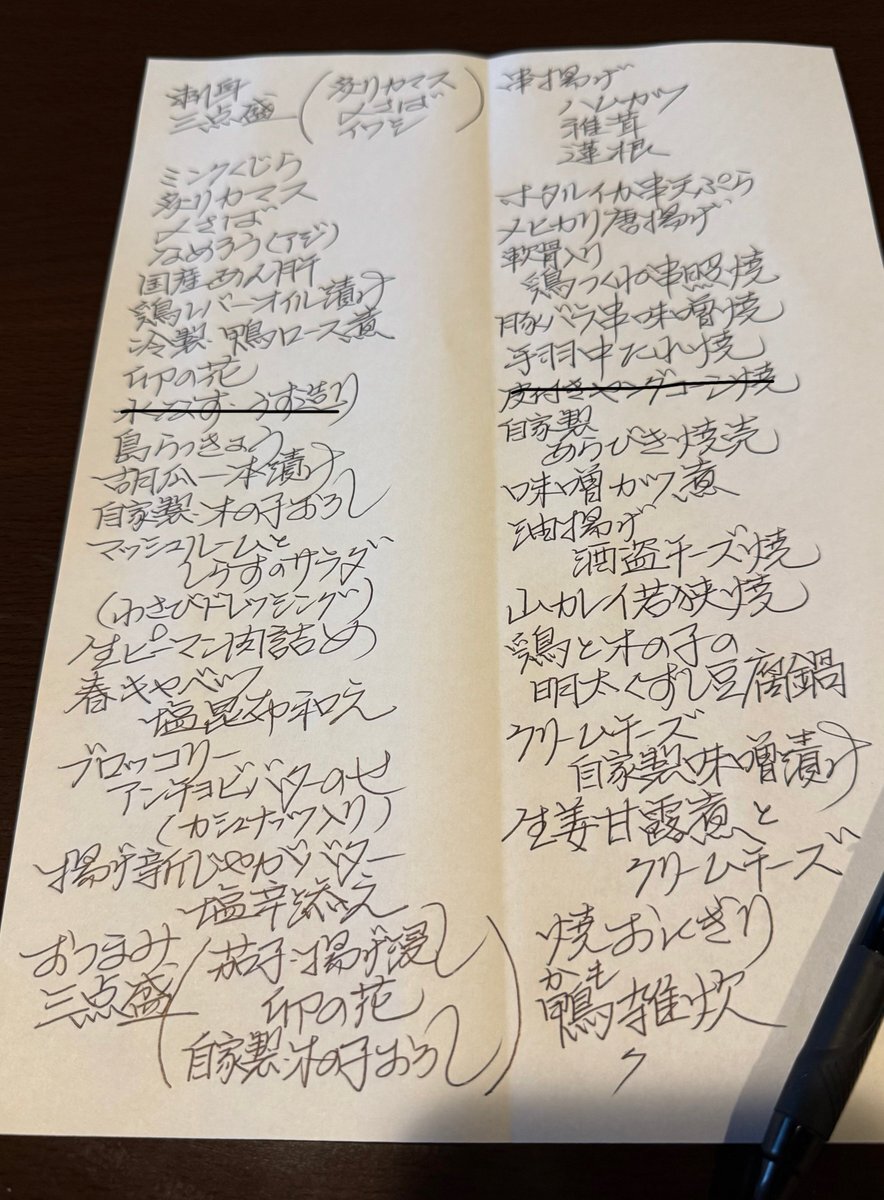 刺身
三点盛
(炙りカマス
〆さば
イワシ)
ミンクくじら
炙りカマス
〆さば
なめろう(アジ)
国産あん肝
鶏レバーオイル漬け
冷製 鴨ロース煮
卯の花
水なす うす造り
島らっきょう
胡瓜一本漬け
自家製 木の子おろし
マッシュルームと
しらすのサラダ
(わさびドレッシング)
生ピーマン肉詰め
春キャベツ
塩昆布和え
ブロッコリー
アンチョビバターのせ
(カシュナッツ入り)
揚げ新じゃがバター
塩辛添え
おつまみ
三点盛
(茄子揚げ浸し
卯の花
自家製 木の子おろし)
串揚げ
ハムカツ
椎茸
蓮根
ホタルイカ串天ぷら
メヒカリ唐揚げ
軟骨入り
鶏つくね串照焼
豚バラ串味噌焼
手羽中たれ焼
皮付きヤングコーン焼
自家製
あらびき焼売
味噌カツ煮
油揚げ
酒盗チーズ焼
山カレイ若狭焼
鶏と木の子の
明太くずし豆腐鍋
クリームチーズ
自家製味噌漬け
生姜甘露煮と
クリームチーズ
焼おにぎり
かも
鴨雑炊